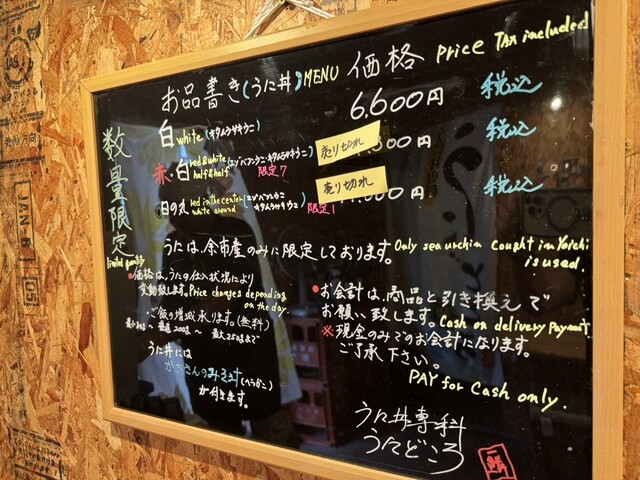 お品書き(うに丼)MENU 価格 Price Tax included
数量限定
limited quantity
白 white (キタムラサキウニ) 6,600円 税込
赤・白 red & white half & half (エゾバフンウニ・キタムラサキウニ) 限定7 売り切れ 500円 税込
日の丸 red in the center white around (エゾバフンウニ キタムラサキウニ) 限定1 売り切れ 000円 税込
うには、余市産のみに限定しております。Only sea urchin cought in Yoichi is used.
•価格は、うにの仕入状況により
変動致します。Price changes depending on the day.
・ご飯の増減承ります。(無料)
うに丼には
が付きます。
•お会計は、商品と引き換えで
お願い致します。Cash on delivery Payment
※現金のみでのお会計になります。
ご了承下さい。
PAY for Cash only.
うに丼専科
うにどころ
JAN-B
105